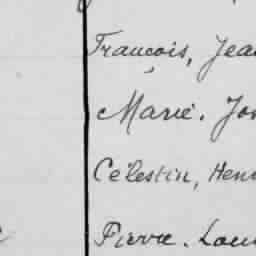 François, Jea
Marie. Jo
Célestin, Hen
Pierre. Lou